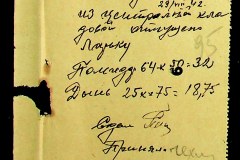 29/VIII 42.
из центральной кла
довой отпущено
Ларьку
Помада 64 х 50 = 32
Дынь 25 х 75 = 18,75
Сдал
Принял
95